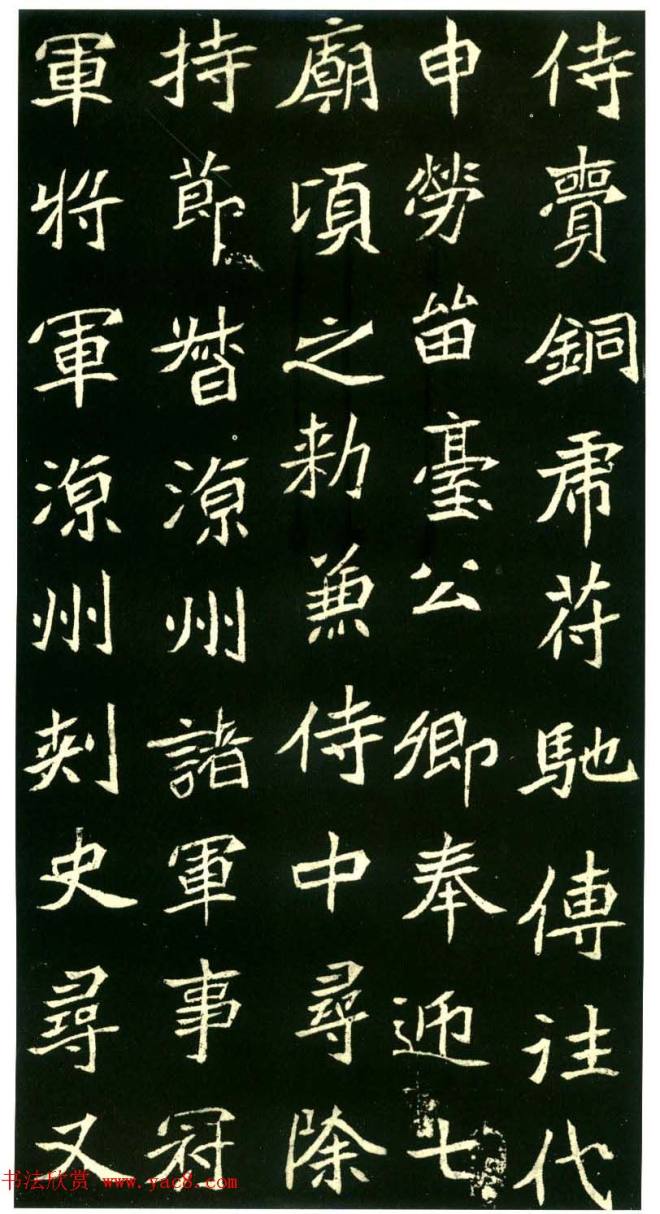 侍賫銅虎苻馳傳詿代
申勞留臺公卿奉迎七
廟頃之勑兼侍中尋除
持節督源州諸軍事冠
軍將軍源州刺史尋又
书法欣赏 www.yac8.com